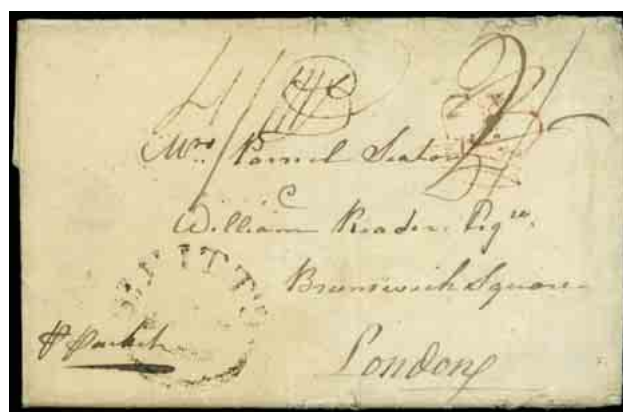 Mrs. Parnel Seaton
C
William Reader Esqre.
Brunswick Square
London
St. KITTS
P Packet